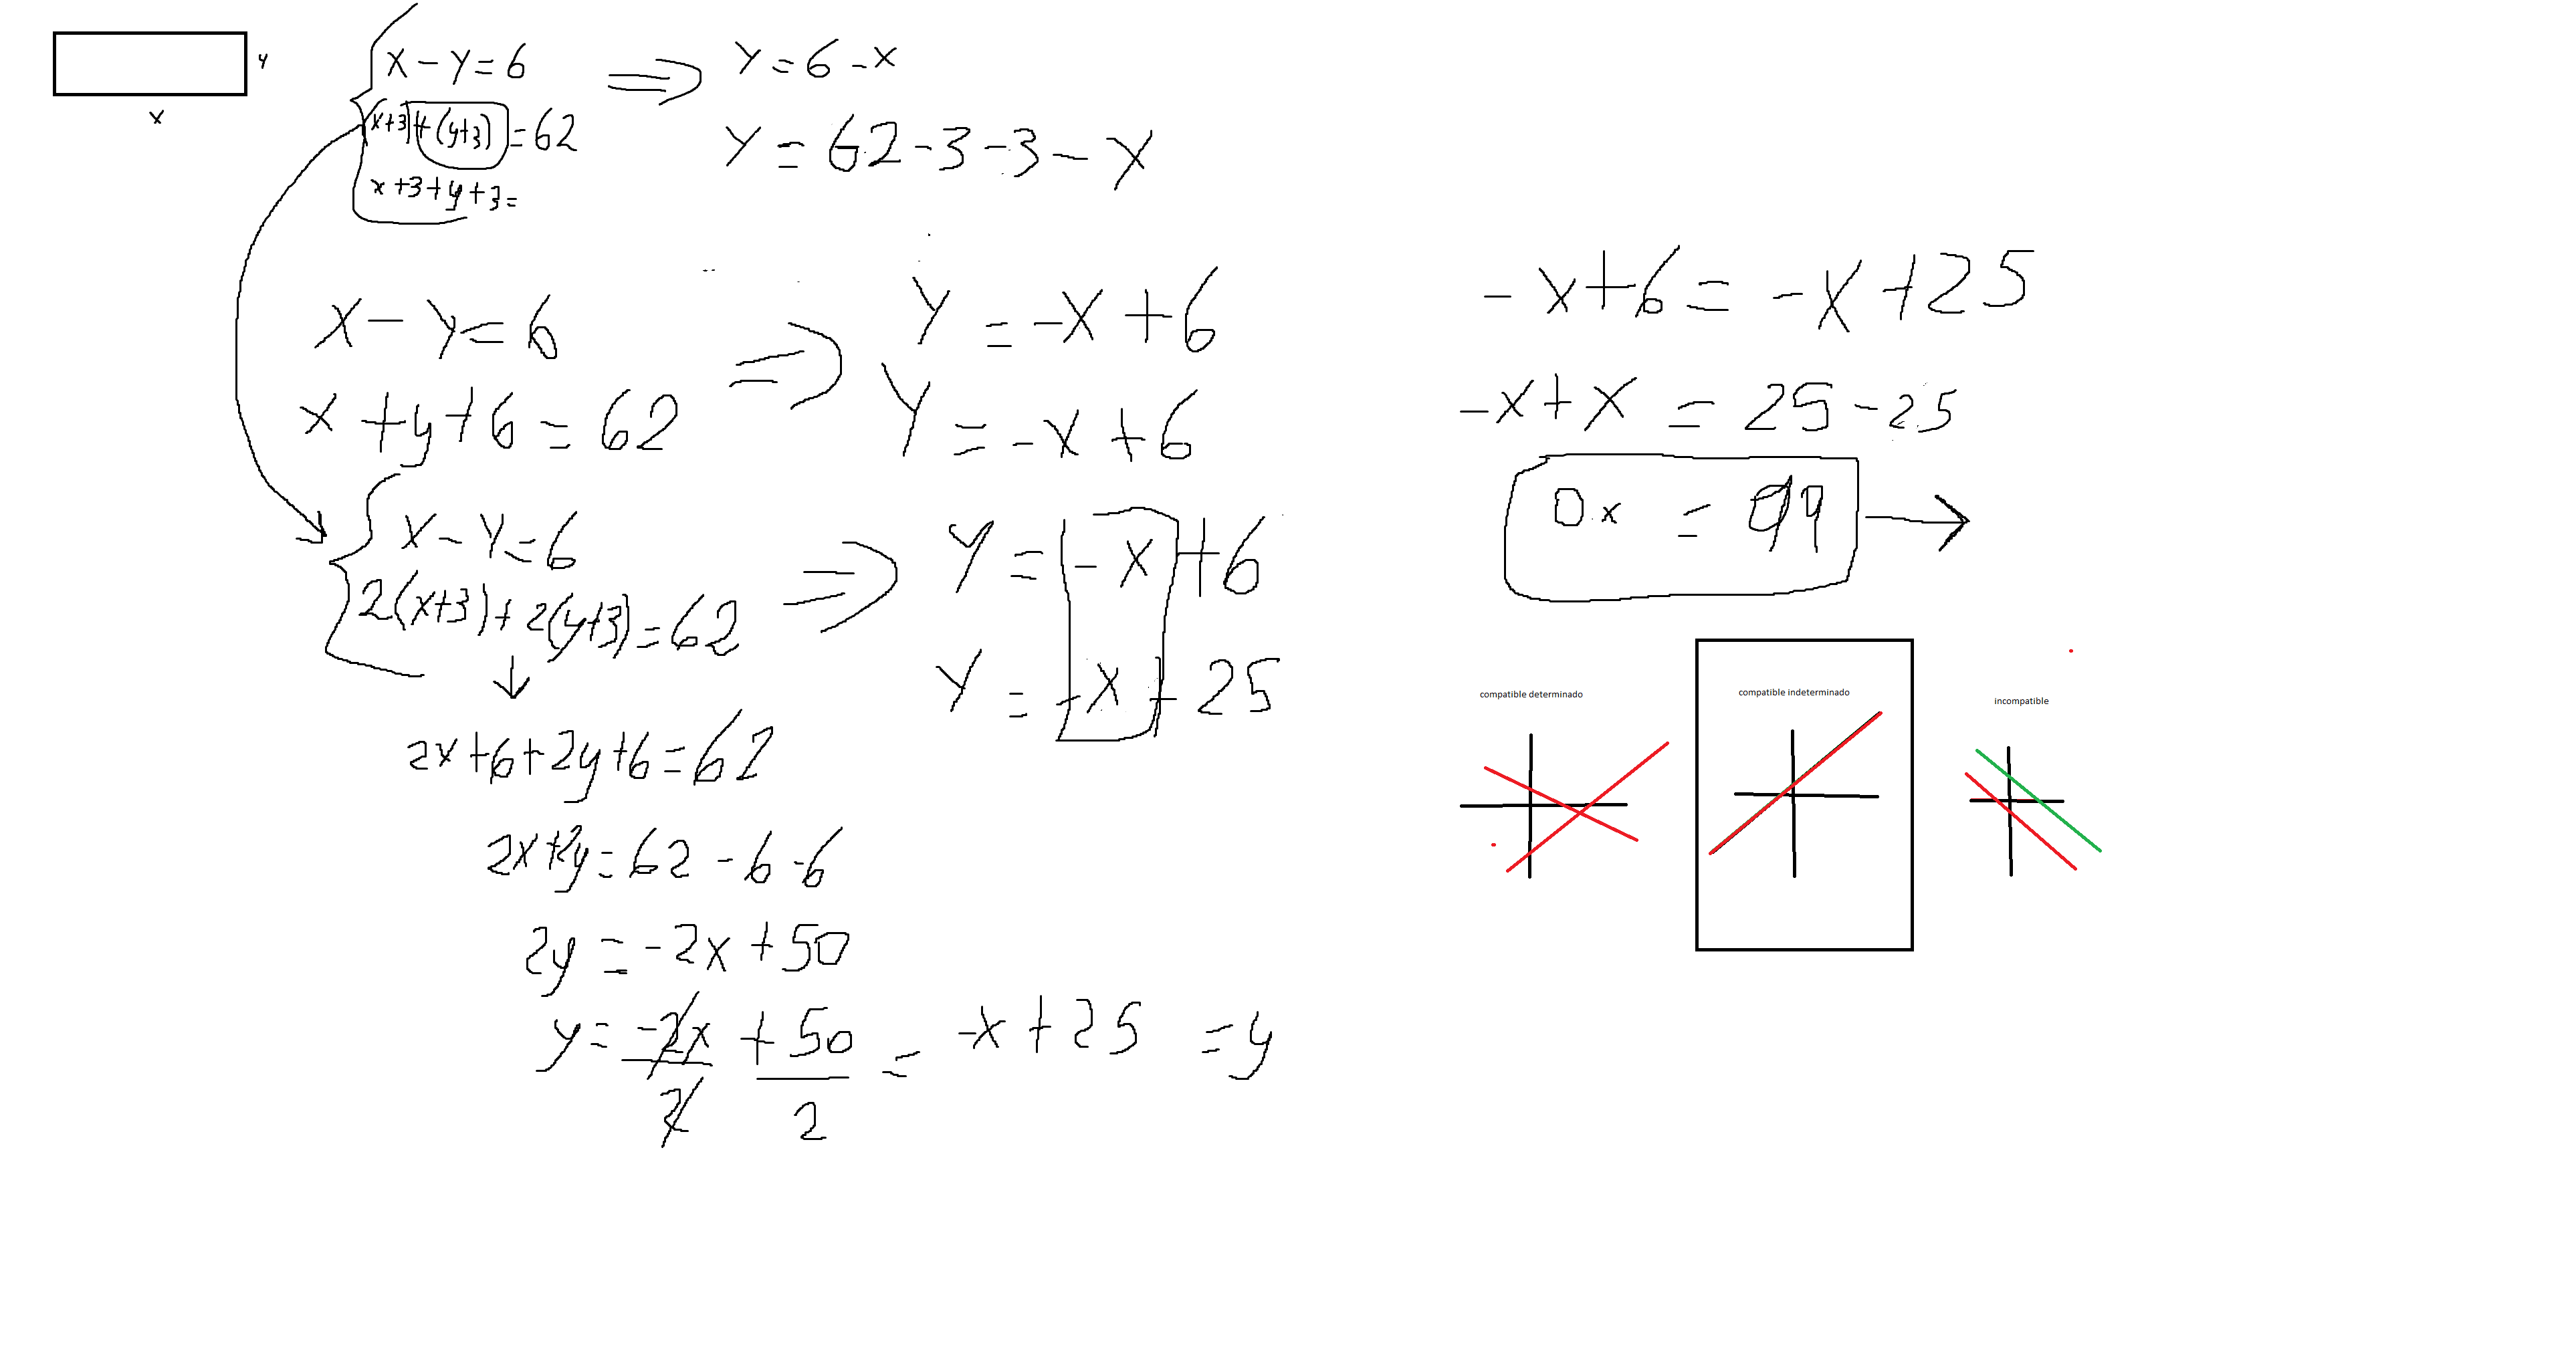 y
x
x - y = 6 ⇒ y = 6 - x
(x+3)+(y+3) = 62
y = 62 - 3 - 3 - x
x + 3 + y + 3 =
x - y = 6 ⇒ y = -x + 6
x + y + 6 = 62
y = -x + 6
x - y = 6 ⇒ y = -x + 6
2(x+3) + 2(y+3) = 62
y = -x + 25
↓
2x + 6 + 2y + 6 = 62
2x + 2y = 62 - 6 - 6
2y = -2x + 50
y = -2x/2 + 50/2 = -x + 25 = y
-x + 6 = -x + 25
-x + x = 25 - 25
0x = →
compatible determinado
compatible indeterminado
incompatible